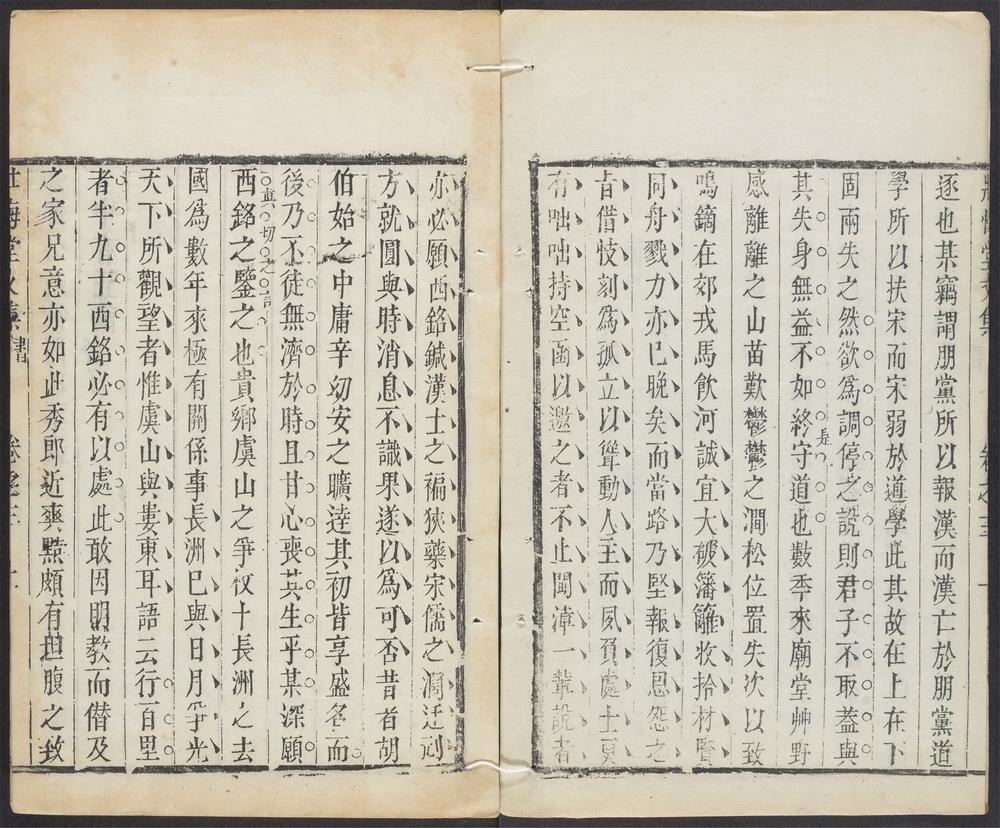 逐也某竊謂朋黨所以報漢而漢亡於朋黨道
學所以扶宋而宋弱於道學此其故在上在下
固兩失之然欲為調停之說則君子不取蓋與
其失身無益不如終守道也數年來廟堂艸野
是
感離離之山苗歎鬱鬱之澗松位置失次以致
鳴鏑在郊戎馬飲河誠宜大破籓籬收拾材賢
同舟戮力亦已晚矣而當路乃堅報復恩怨之
旨借忮刻為孤立以聳動人主而夙負處士
有咄咄持空函以邀之者不止聞漳一輩說者
亦必願西銘鍼漢士之褊狹藥宋儒之濶迂
方就圓與時消息不識果遂以為可否昔者胡
伯始之中庸辛幼安之曠達其初皆享盛名而
後乃不徒無濟於時且甘心喪其生平某深願
西銘之鑒之也貴鄉虞山之爭枚十長洲之去
國為數年來極有關係事長洲已與日月爭光
天下所觀望者惟虞山與婁東耳語云行百里
者半九十西銘必有以處此敢因明教而僭及
之家兄意亦如此秀郎近爽黠頗有坦腹之致
壯悔堂文集